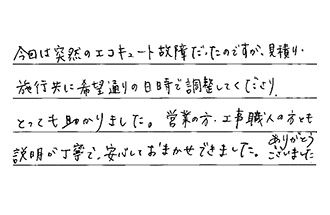 今回は突然のエコキュート故障だったのですが、見積り・
施行共に希望通りの日時で調整してくださり
とっても助かりました。営業の方・工事職人の方とも
説明が丁寧で、安心しておまかせできました。ありがとう
ございました